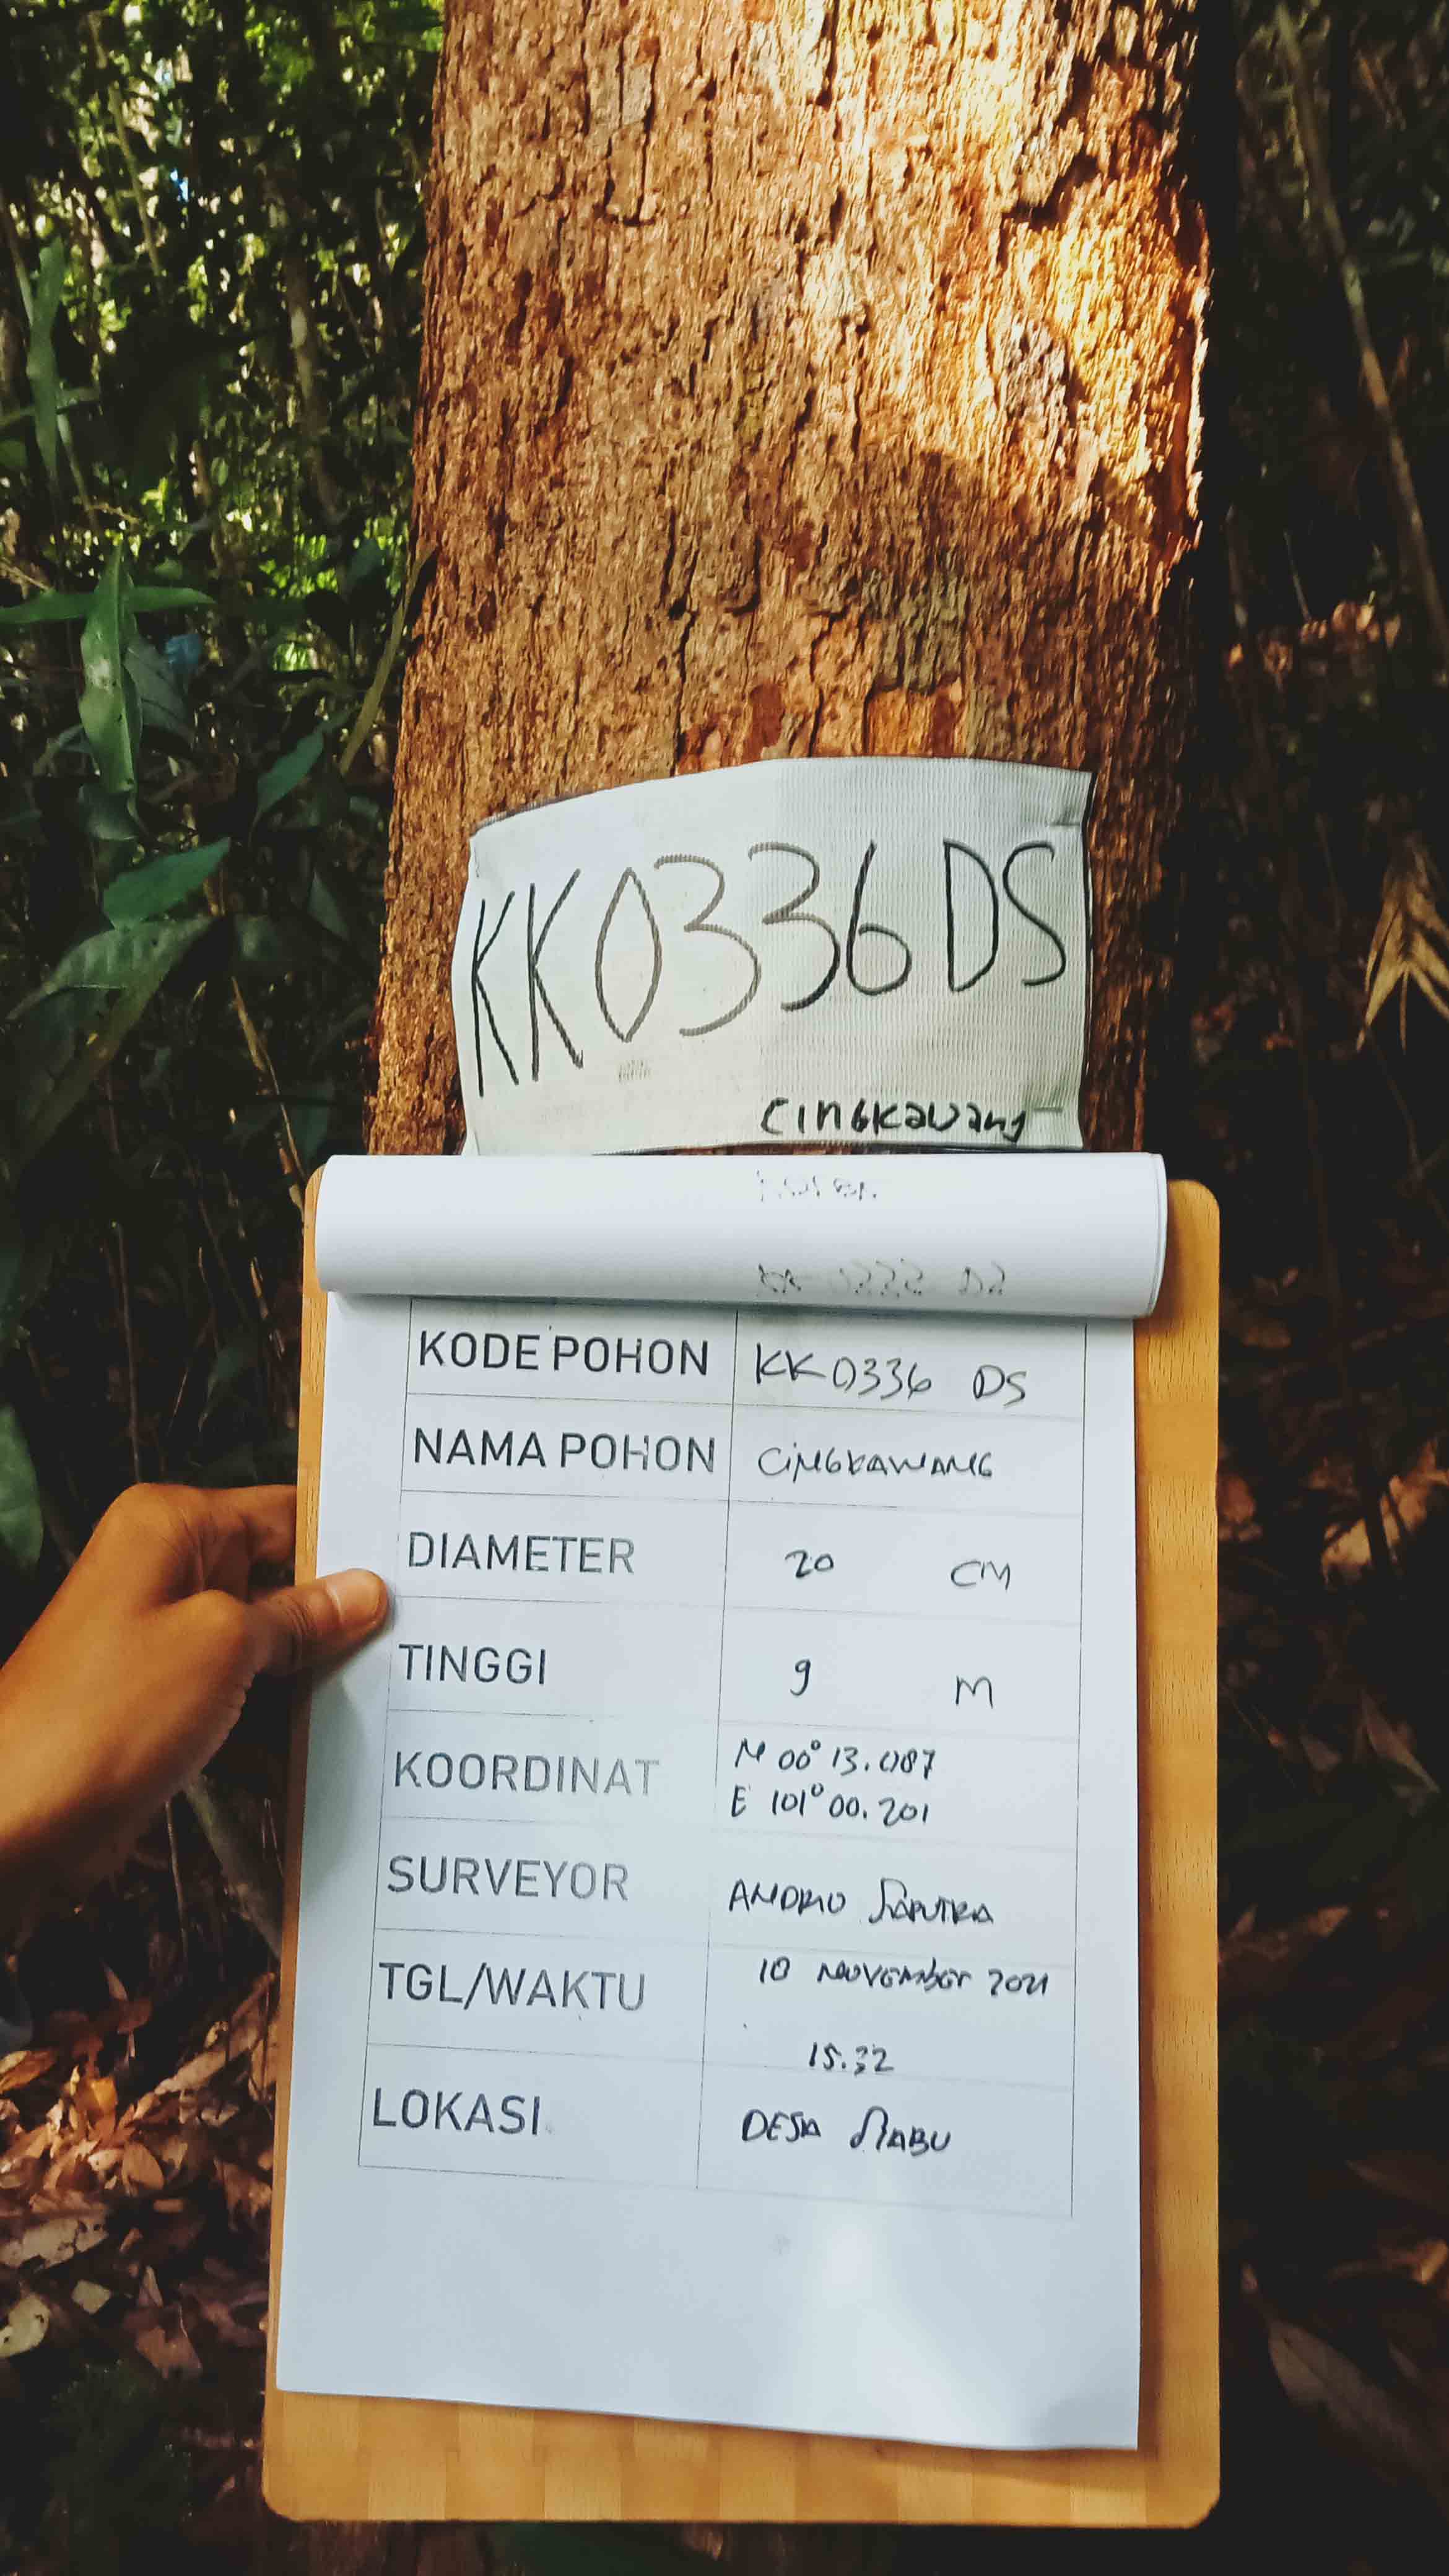 KK0336 DS
CingKawang
KODE POHON KK0336 DS
NAMA POHON CiNGKAWANG
DIAMETER 20 CM
TINGGI 9 M
KOORDINAT N 00° 13.087
E 101° 00.201
SURVEYOR ANDRIO SAPUTRA
TGL/WAKTU 10 NOVEMBER 2021
15.32
LOKASI DESA